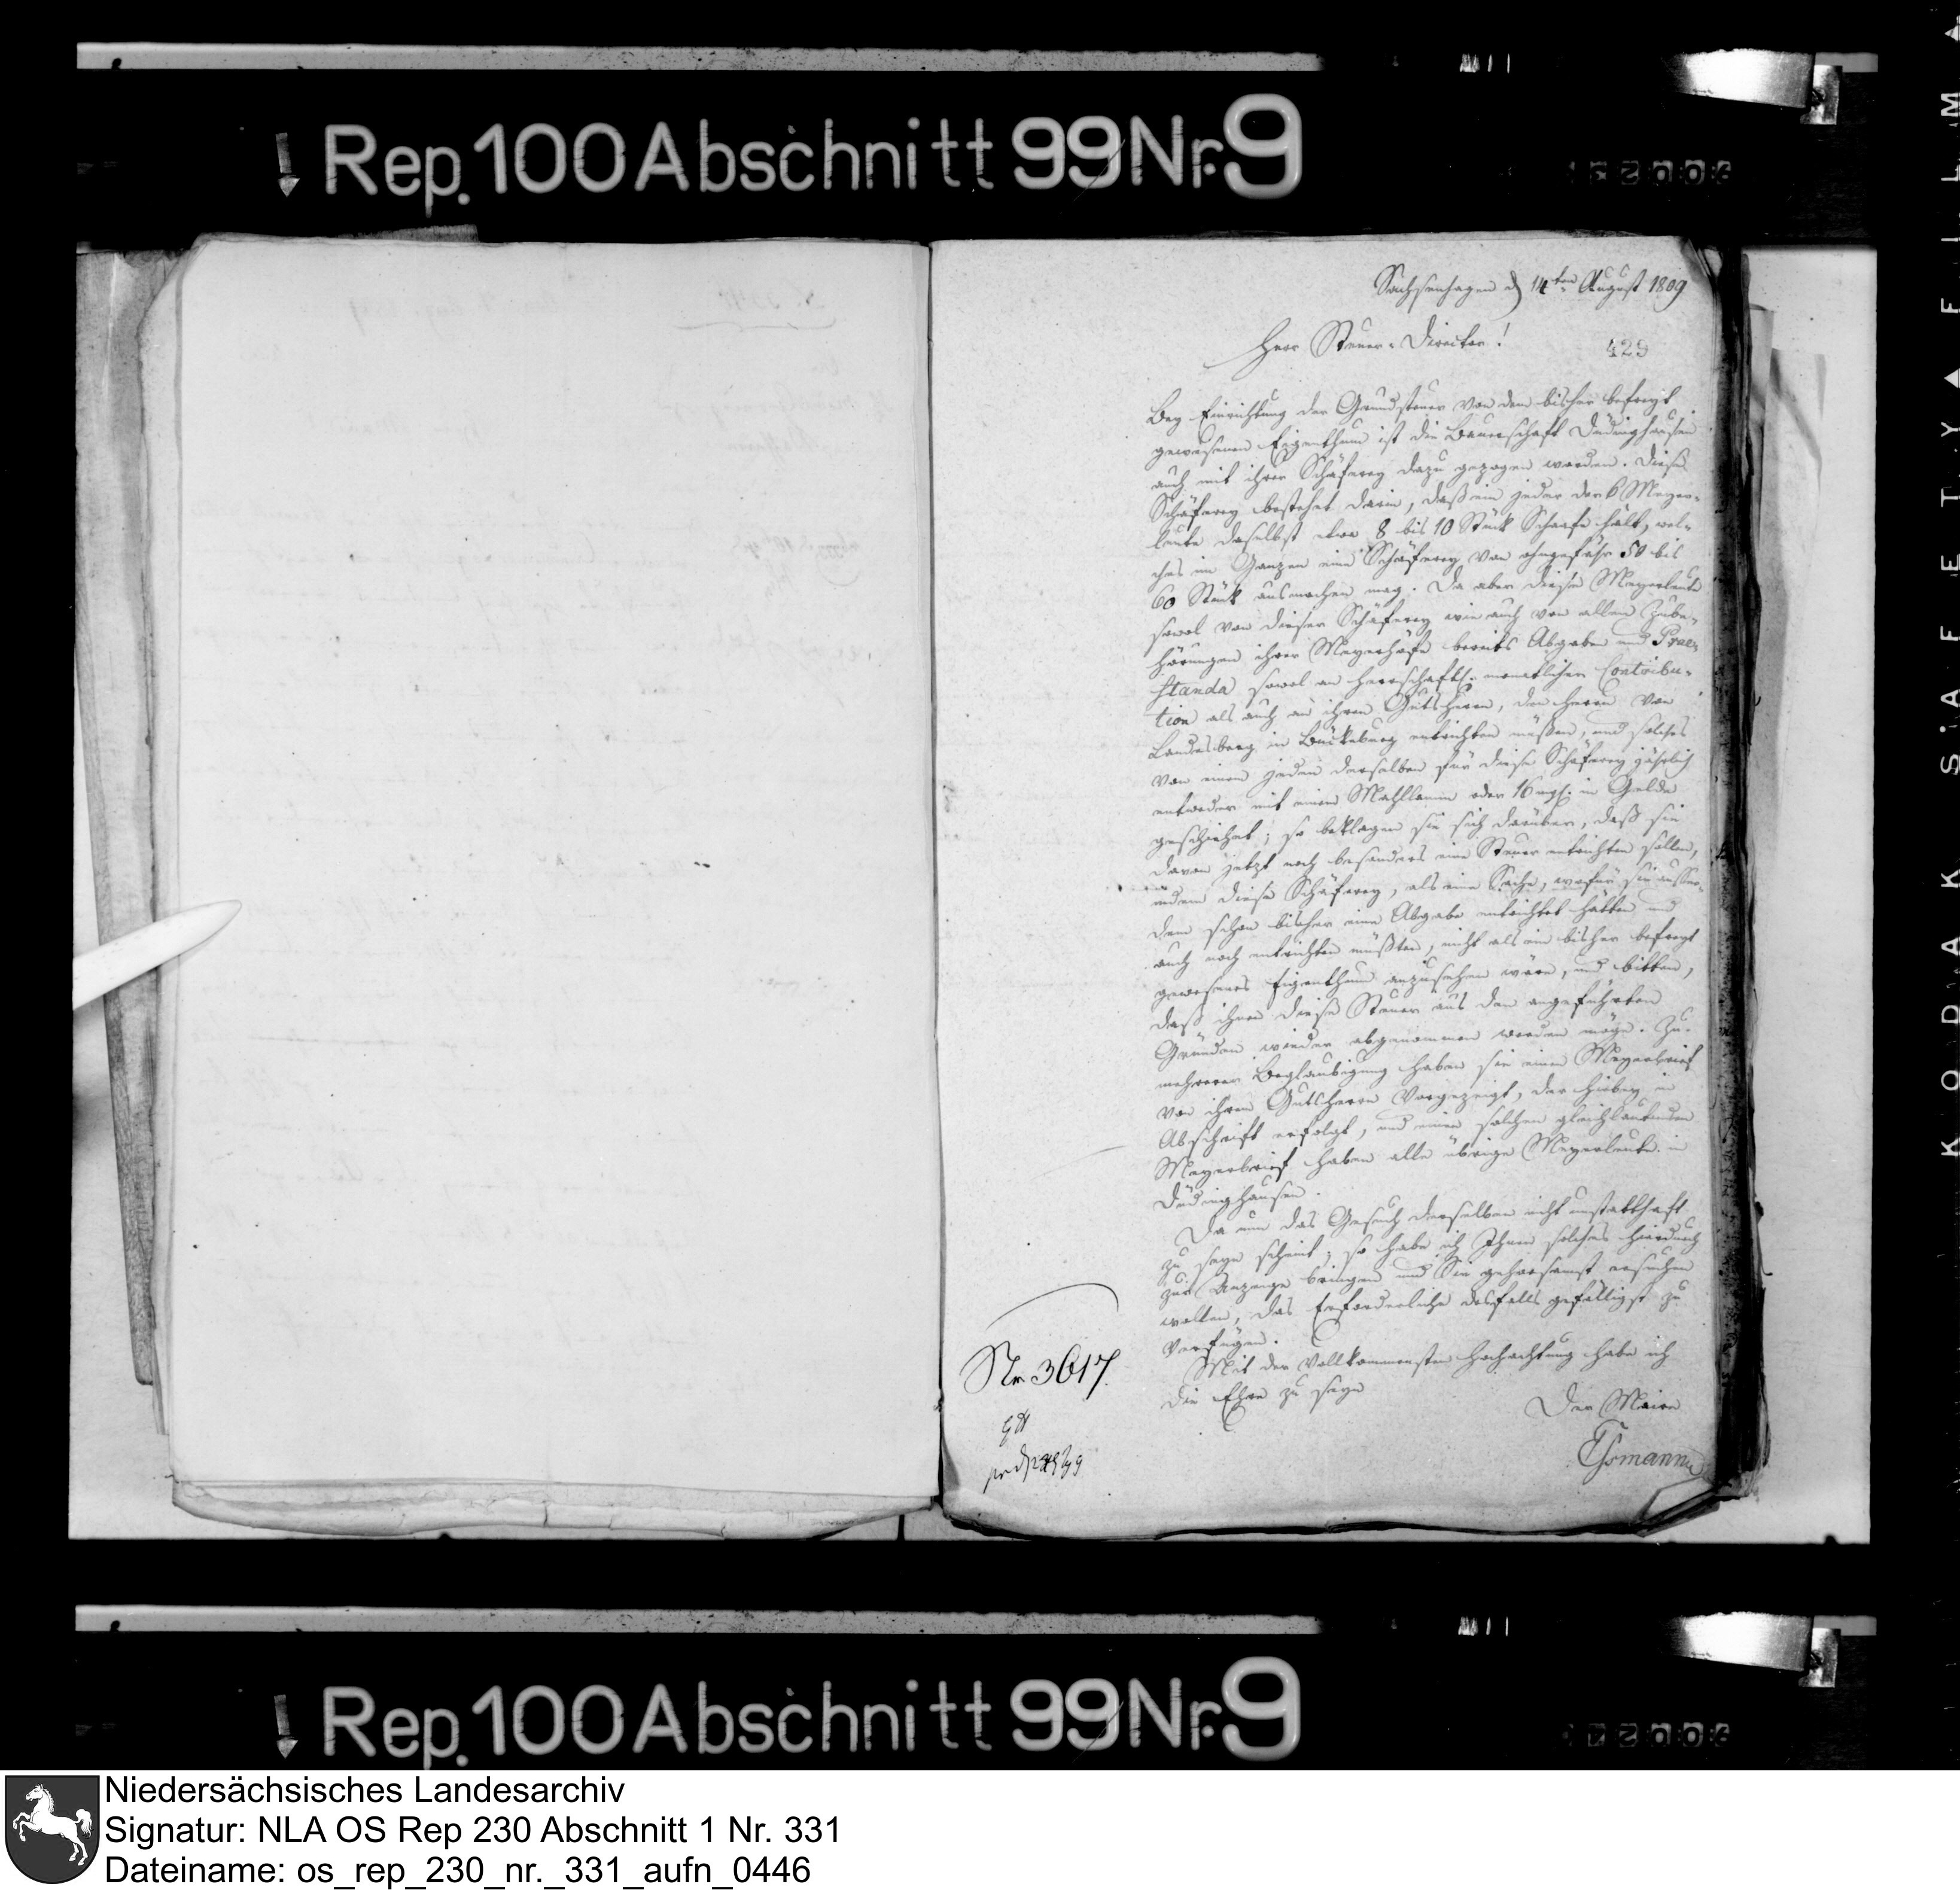 Rep. 100 Abschnitt 99 Nr. 9
Sachsenhagen d 14ten August 1809
Herr Steuer-Director!
429
Bey Einrichtung der Grundsteuer von dem bisher befreyt
gewesenen Eigenthum ist die Bauerschaft Düdinghausen
auch mit ihrer Schäferey dazu gezogen worden. Diese
Schäferey bestehet darin, daß ein jeder der 6 Meyer-
leute daselbst etwa 8 bis 10 Stück Schaafe hält, wel-
ches im Ganzen eine Schäferey von ohngefähr 50 bis
60 Stück ausmachen mag. Da aber diese Meyerleute
sowol von dieser Schäferey wie auch von allen Zube-
hörungen ihrer Meyerhöfe bereits Abgaben und Prae-
standa sowol an herrschaftl. monatlicher Contribu-
tion als auch an ihren Gutsherrn, den Herrn von
Landesberg in Bückeburg entrichten müßen, und solches
von einem jeden derselben für diese Schäferey jährlich
entweder mit einem Mahllamm oder 16 mgf. in Gelde
geschiehet; so beklagen sie sich darüber, daß sie
davon jetzt noch besonders eine Steuer entrichten sollen,
indem diese Schäferey, als eine Sache, wofür sie ausser-
dem schon bisher eine Abgabe entrichtet hätten und
auch noch entrichten müßten, nicht als ein bisher befreyt
gewesenes Eigenthum anzusehen wäre, und bitten,
daß ihnen diese Steuer aus den angeführten
Gründen wieder abgenommen werden möge. Zu
mehrerer Beglaubigung haben sie einen Meyerbrief
von ihrem Gutsherrn vorgezeigt, der hiebey in
Abschrift erfolgt, und einen solchen gleichlautenden
Meyerbrief haben alle übrige Meyerleute in
Düdinghausen.
Da nun das Gesuch derselben nicht unstatthaft
zu seyn scheint; so habe ich Ihnen solches hierdurch
zur Anzeige bringen und Sie gehorsamst ersuchen
wollen, das Erforderliche desfalls gefälligst zu
verfügen.
Mit der vollkommensten Hochachtung habe ich
die Ehre zu seyn
Der Maire
Nr 3617.
Rep. 100 Abschnitt 99 Nr. 9
KODAK SAFETY FILM
Niedersächsisches Landesarchiv
Signatur: NLA OS Rep 230 Abschnitt 1 Nr. 331
Dateiname: os_rep_230_nr._331_aufn_0446